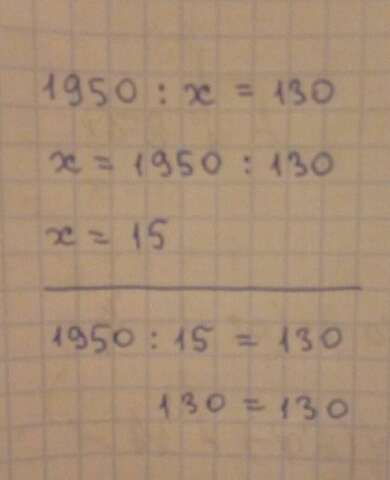 1950 : x = 130
x = 1950 : 130
x = 15
1950 : 15 = 130
130 = 130